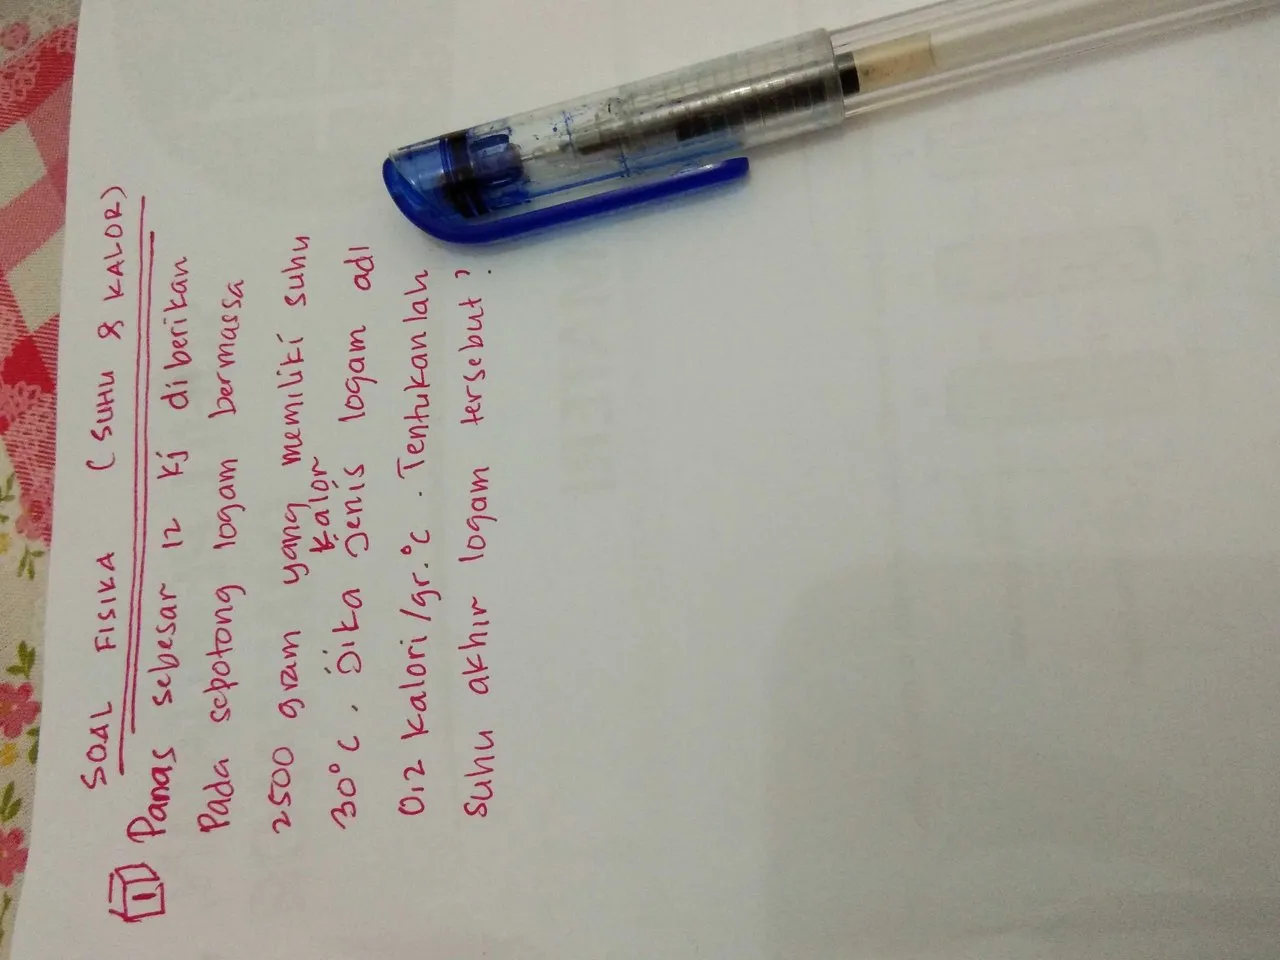 SOAL FISIKA (SUHU & KALOR)
1 Panas sebesar 12 kj diberikan
Pada sepotong logam bermassa
2500 gram yang memiliki suhu
30°C. Jika kalor jenis logam adl
0,2 kalori/gr.°C. Tentukanlah
suhu akhir logam tersebut?